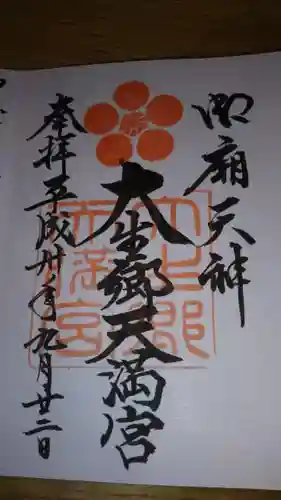 御廟天神
大生郷天満宮
奉拝平成卅年九月廿二日